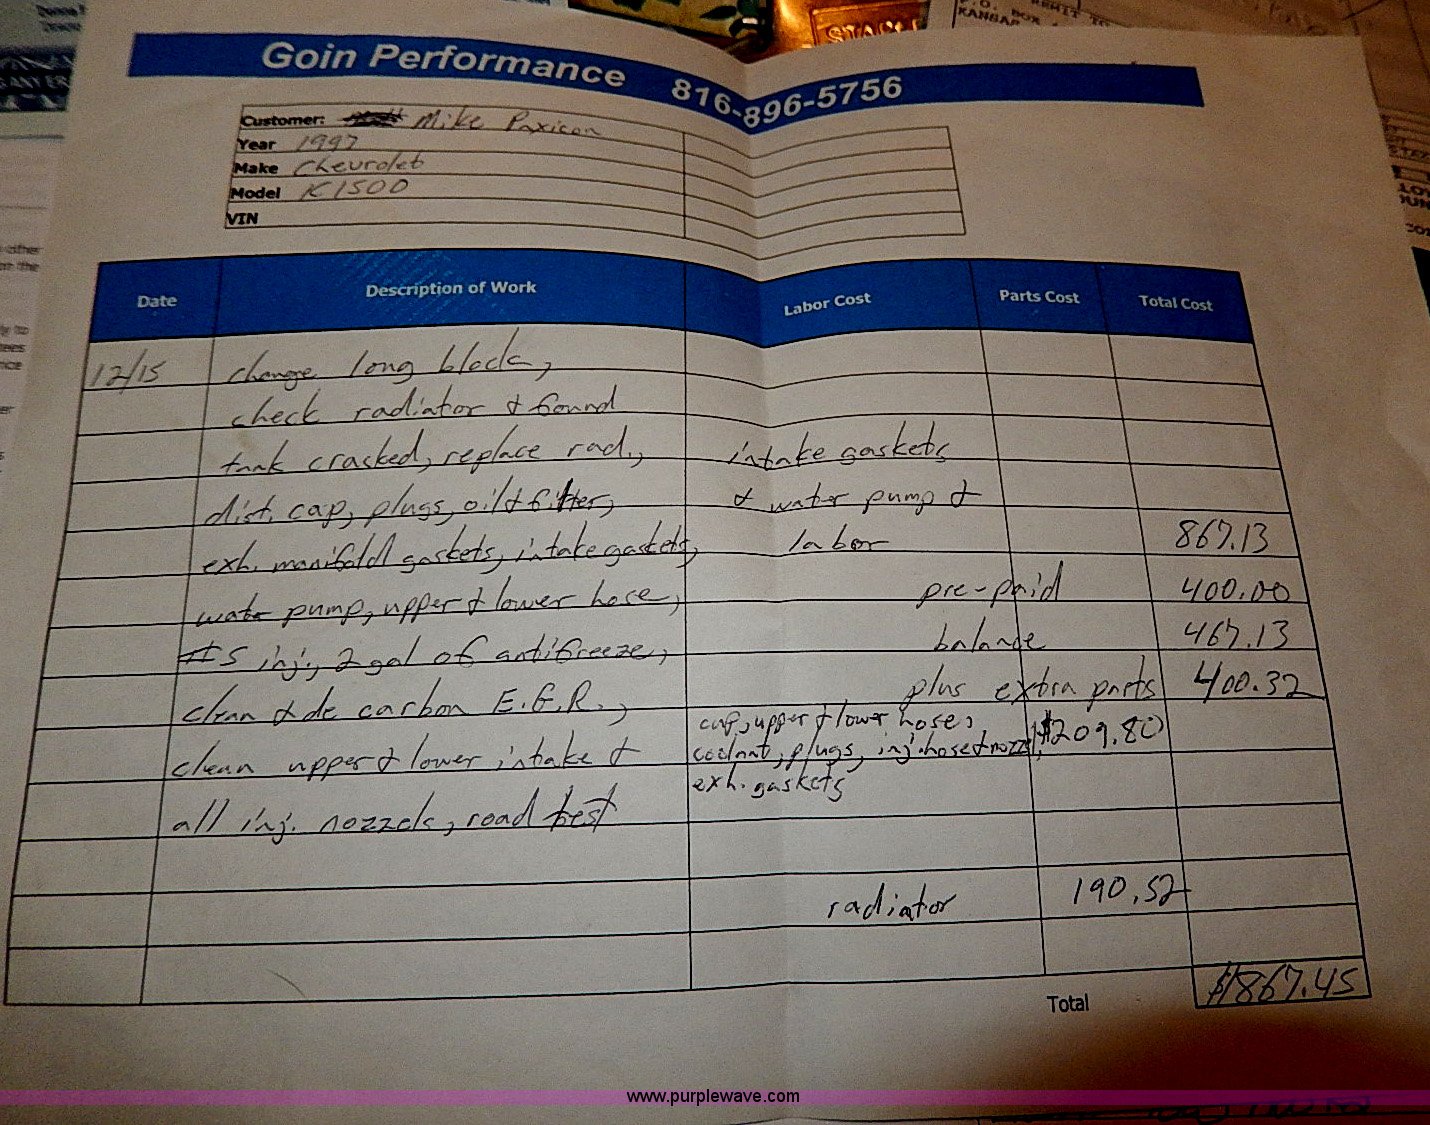 Goin Performance 816-896-5756
STAR
P.O. BOX
REMIT TO
KANSAS
Customer: Mike Paxicon
Year 1997
Make Chevrolet
Model K1500
VIN
Date Description of Work Labor Cost Parts Cost Total Cost
12/15 change long block,
check radiator & found
tank cracked, replace rad., intake gaskets
dist. cap, plugs, oil & filter, & water pump &
exh. manifold gaskets, intake gaskets, labor 867.13
water pump, upper & lower hose, pre-paid 400.00
#5 inj., 2 gal of antifreeze, balance 467.13
clean & de carbon E.G.R., plus extra parts 400.32
cap, upper & lower hose, $209.80
clean upper & lower intake & coolant, plugs, inj. hose & nozzl,
exh. gaskets
all inj. nozzels, road test
radiator 190.52
Total $867.45
www.purplewave.com